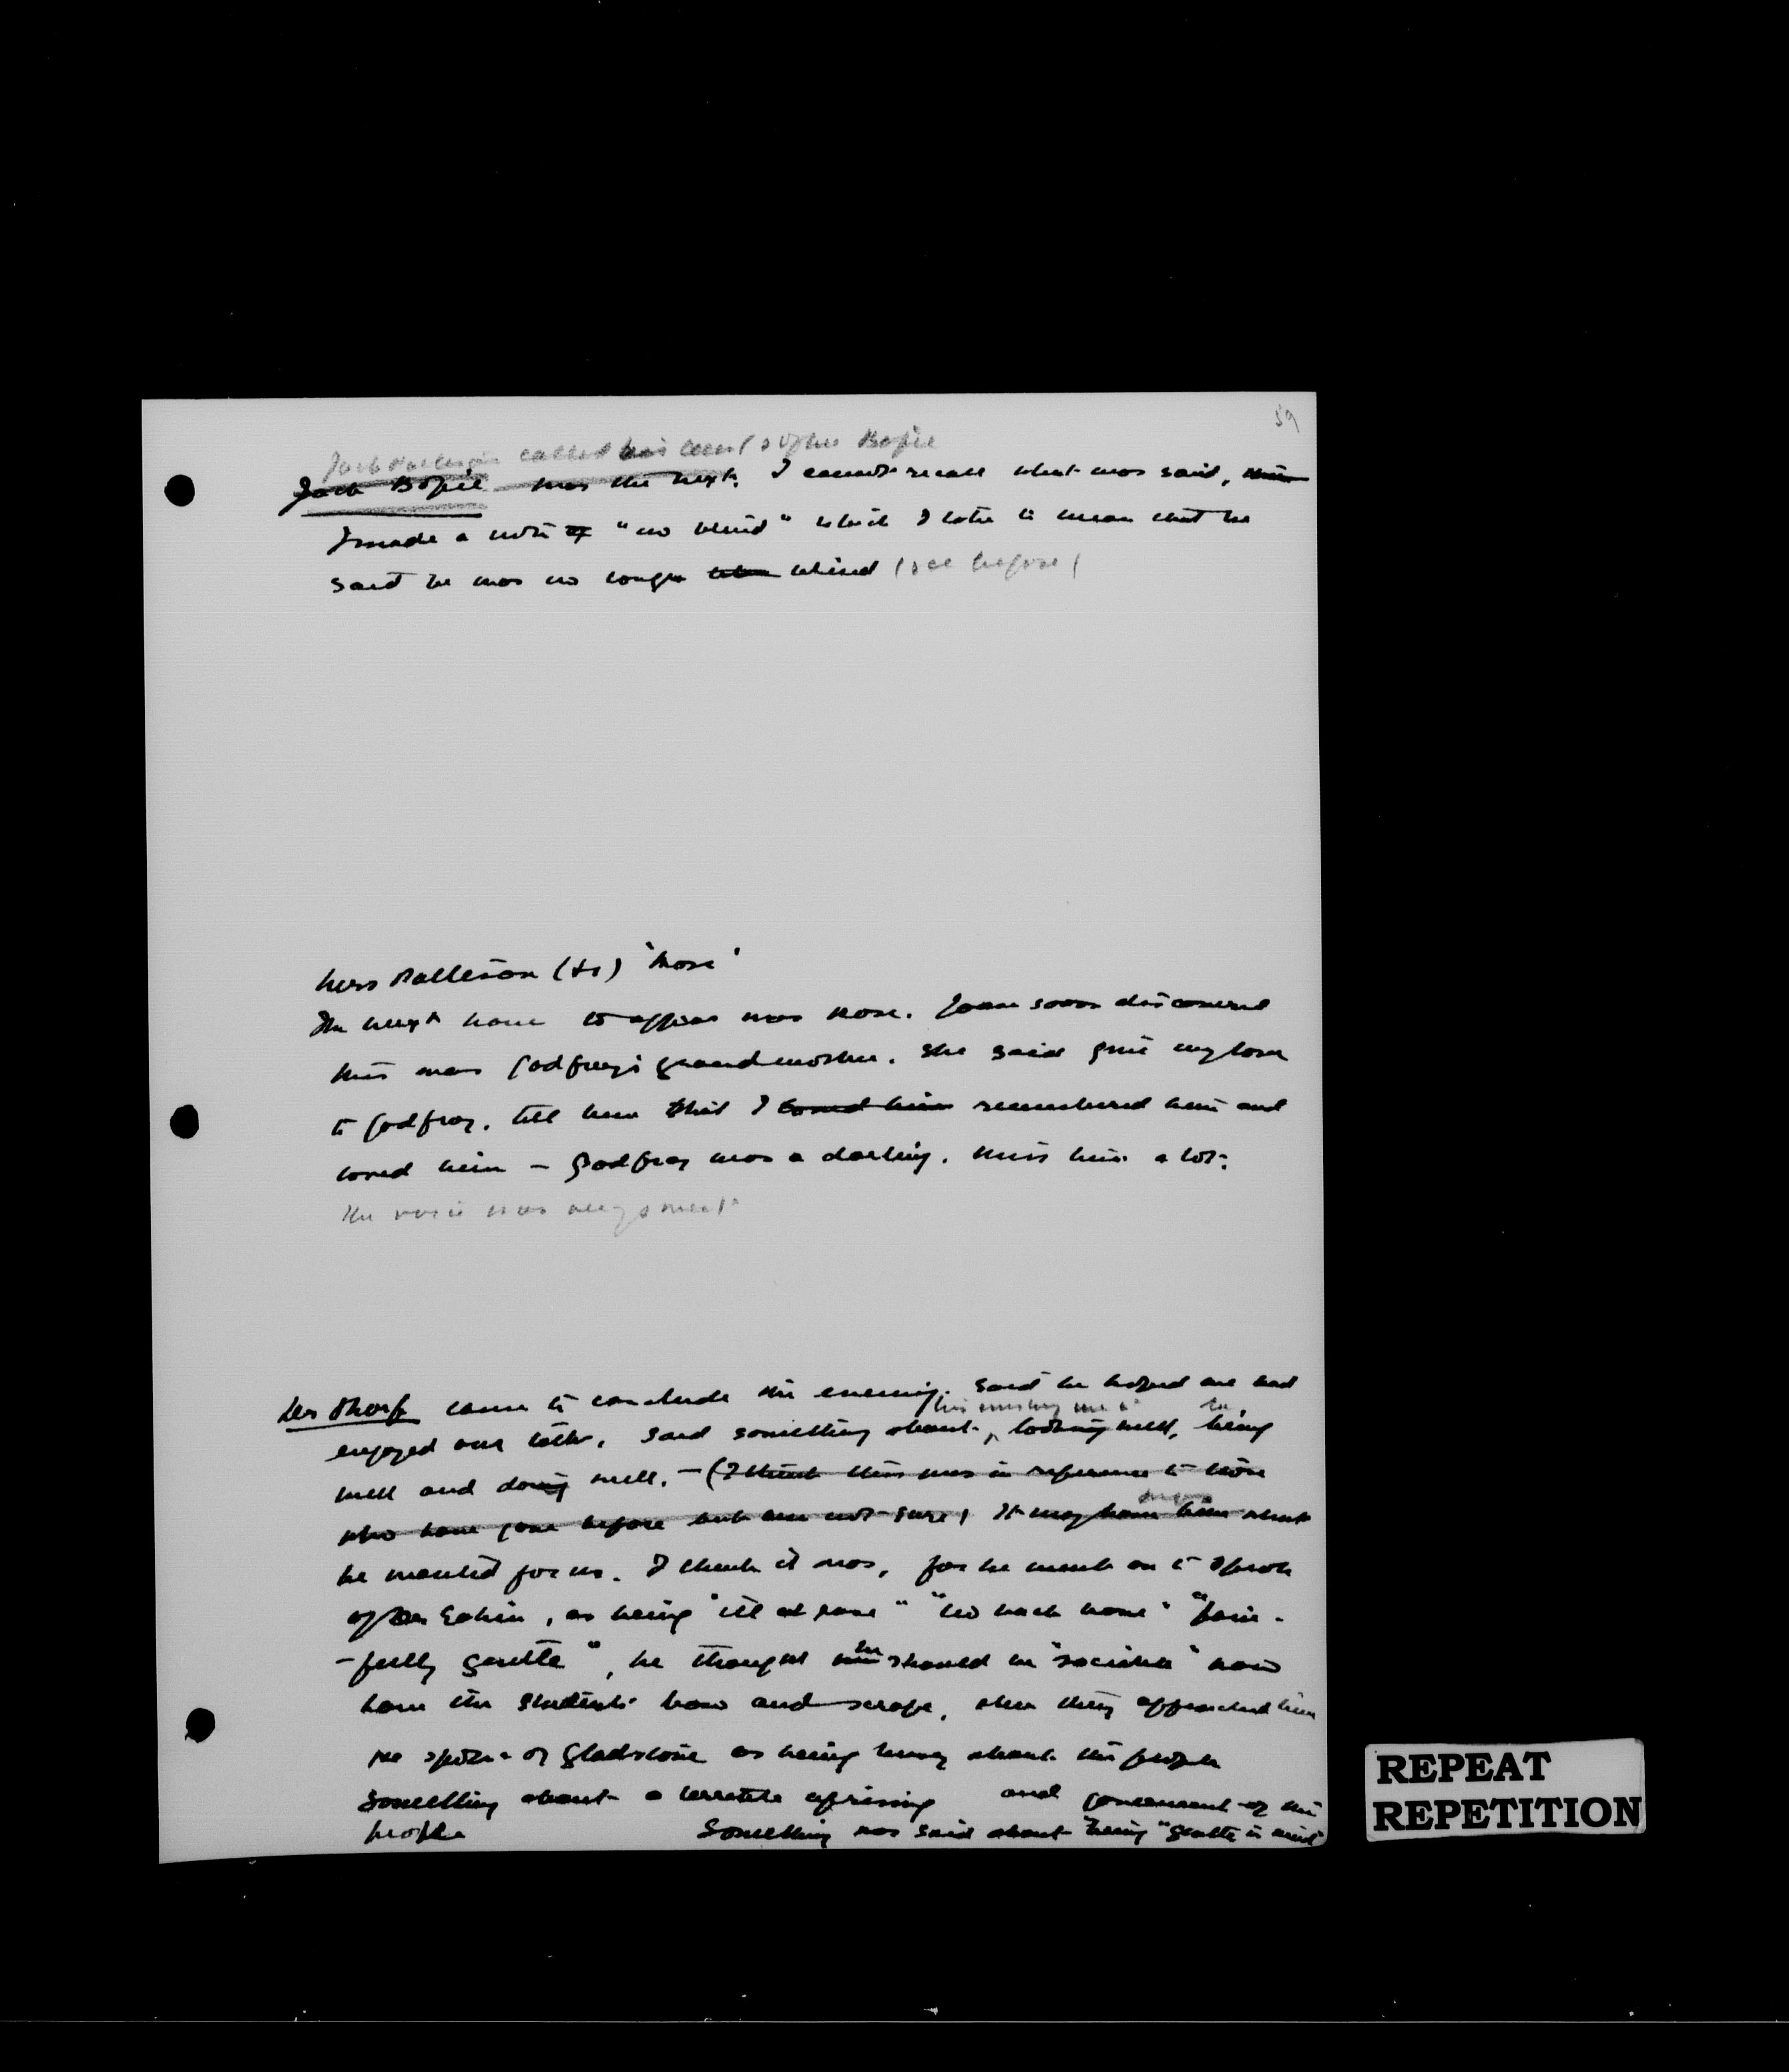 59
Jack called his Bogie
Jack Bogie was the next. I cannot recall what was said,
I made a note of "no blind" which I take to mean that he
said he was no longer blind (see before)
Patteson 'Rose'
The next to appear was Rose. Joan soon discovered
this was Godfrey's grandmother. She said give my love
to Godfrey, tell him that I loved him remembered him and
loved him – Godfrey was a darling. Miss him a lot.
The voice was very
Les Thorpe came to conclude the evening. Said he hoped we had
enjoyed our talk. Said something about looking well, being
well and doing well. – (I think this was in reference to those
who have gone before but am not sure) It may have been what
he wanted for us. I think it was, for he went on to speak
of , as being "ill at ease" "
-fully gentle", he thought he should be now
have the students bow and scrape, when they approached him
He spoke of Gladstone as being about the people
Something about a terrible uprising and government of the
people Something was said about being "gentle in
REPEAT
REPETITION